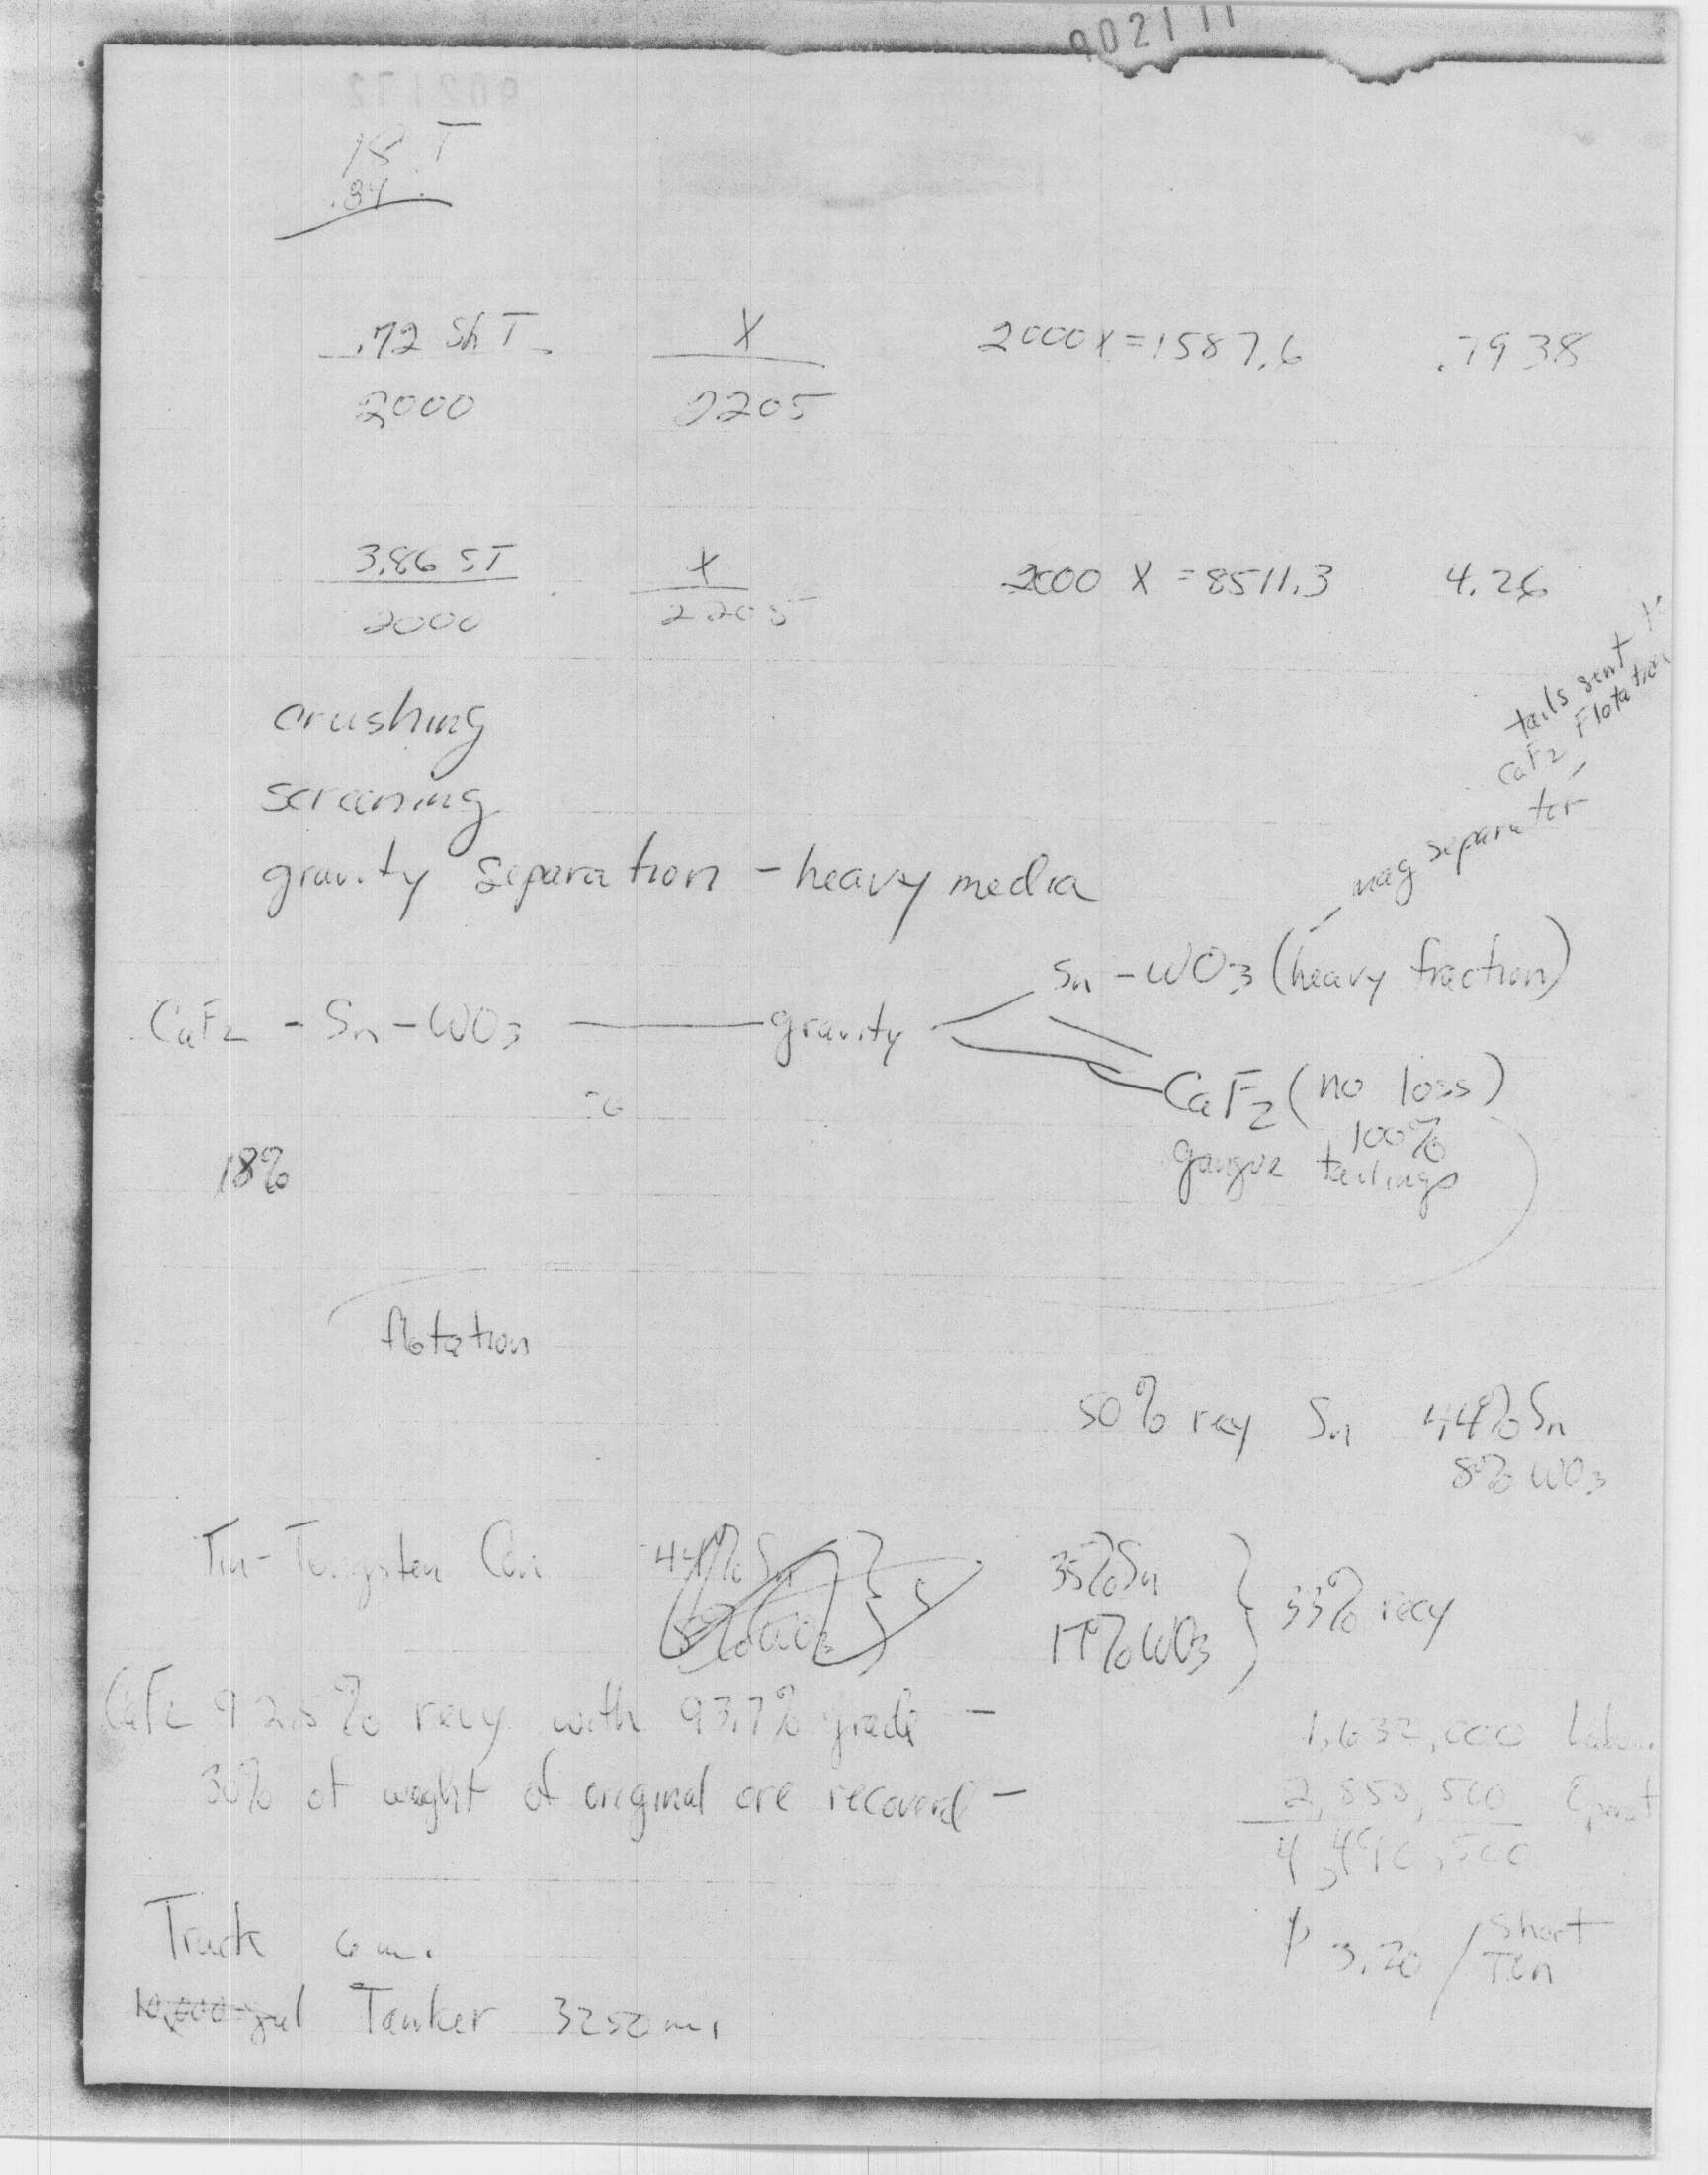 18 T
.84
.72 Sh T X 2000X=1587.6 .7938
2000 2205
3.86 ST X 2000 X = 8511.3 4.26
2000 2205
tails sent
CaF2 Flotation
mag separator
crushing
screening
gravity separation - heavy media
Sn - WO3 (heavy fraction)
CaF2 - Sn - WO3 gravity
CaF2 (no loss)
100%
18% gangue tailings
flotation
50% recy Sn 44% Sn
8% WO3
Tin-Tungsten Con 44% Sn 35% Sn
WO3 17% WO3 33% recy
CaF2 92.5% recy with 93.7% grade -
30% of weight of original ore recovered -
1,632,000 Labor
2,858,500
4,490,500
Truck 6 mi
3.20 / Short Ton
10,000 gal Tanker 3250 mi